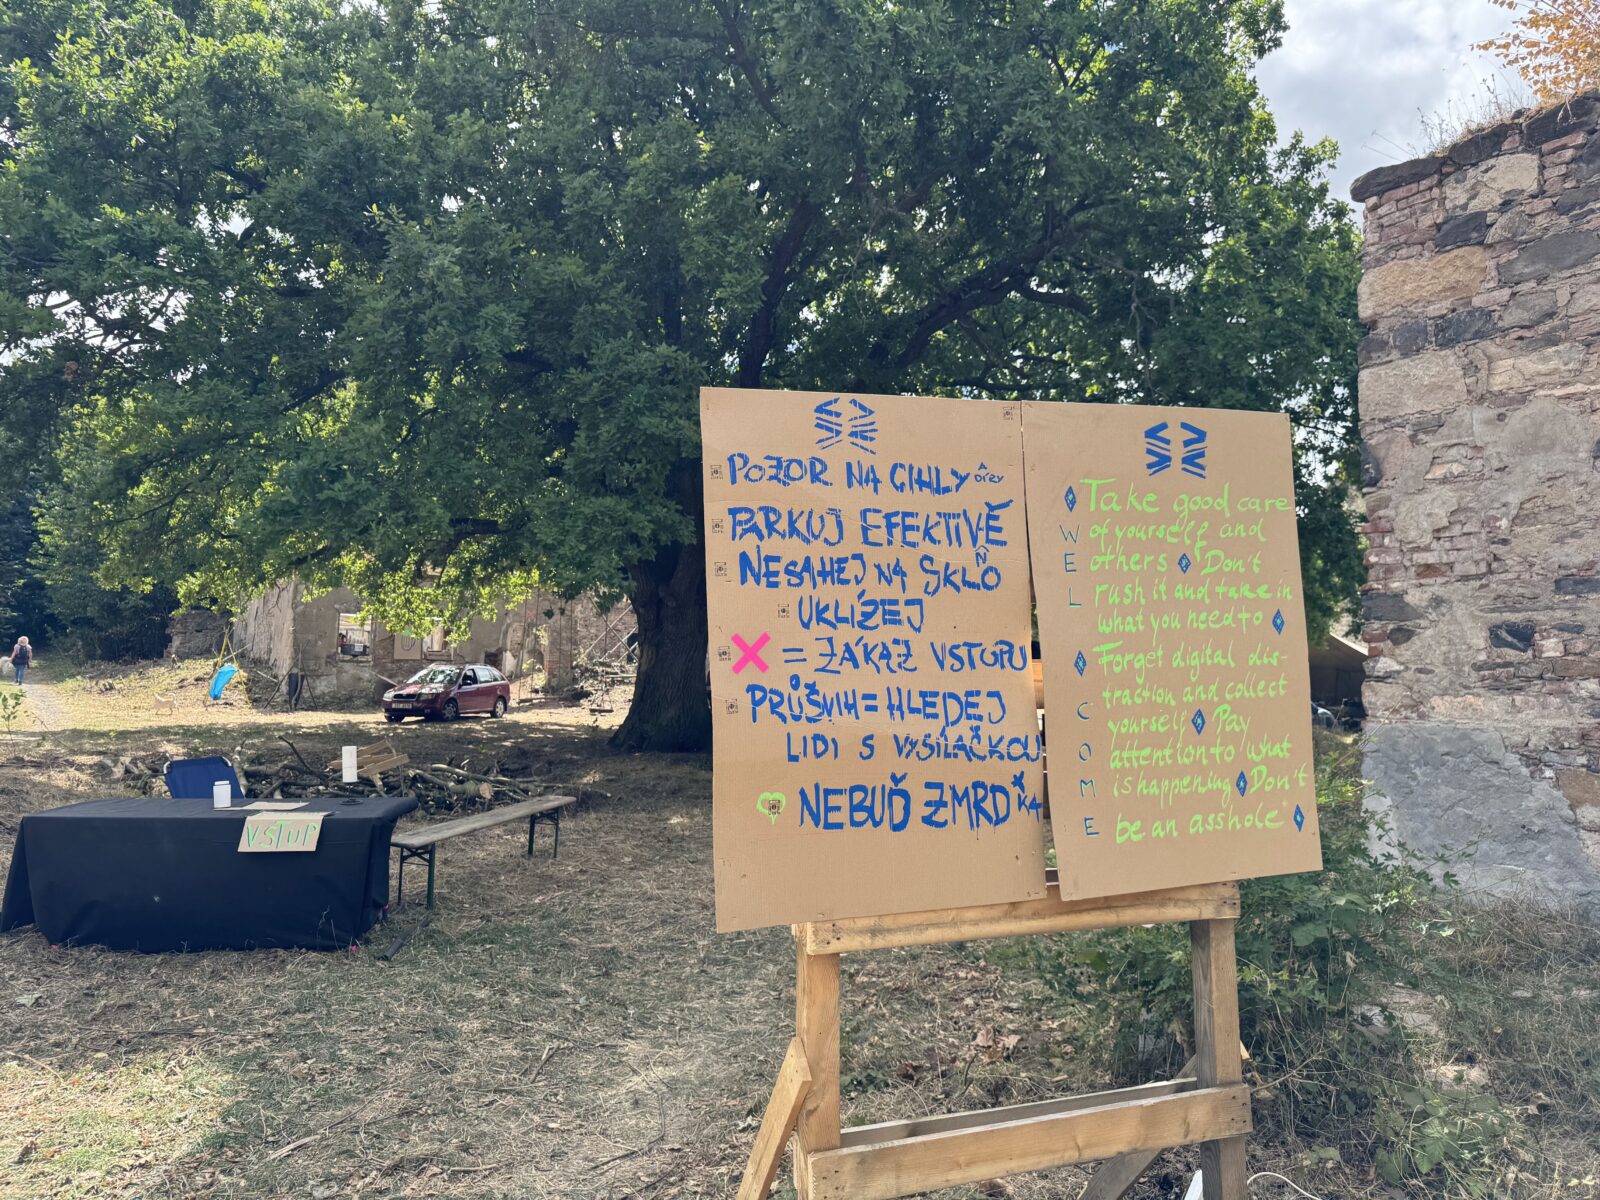 POZOR NA CIHLY
PARKUJ EFEKTIVĚ
NESAHEJ NA SKLO
UKLÍZEJ
X = ZÁKAZ VSTUPU
PRŮŠVIH = HLEDEJ
LIDI S VYSÍLAČKOU
NEBUĎ ZMRD*KA
WELCOME
Take good care
of yourself and
others Don't
rush it and take in
what you need to
Forget digital dis-
traction and collect
yourself Pay
attention to what
is happening Don't
be an asshole
VSTUP